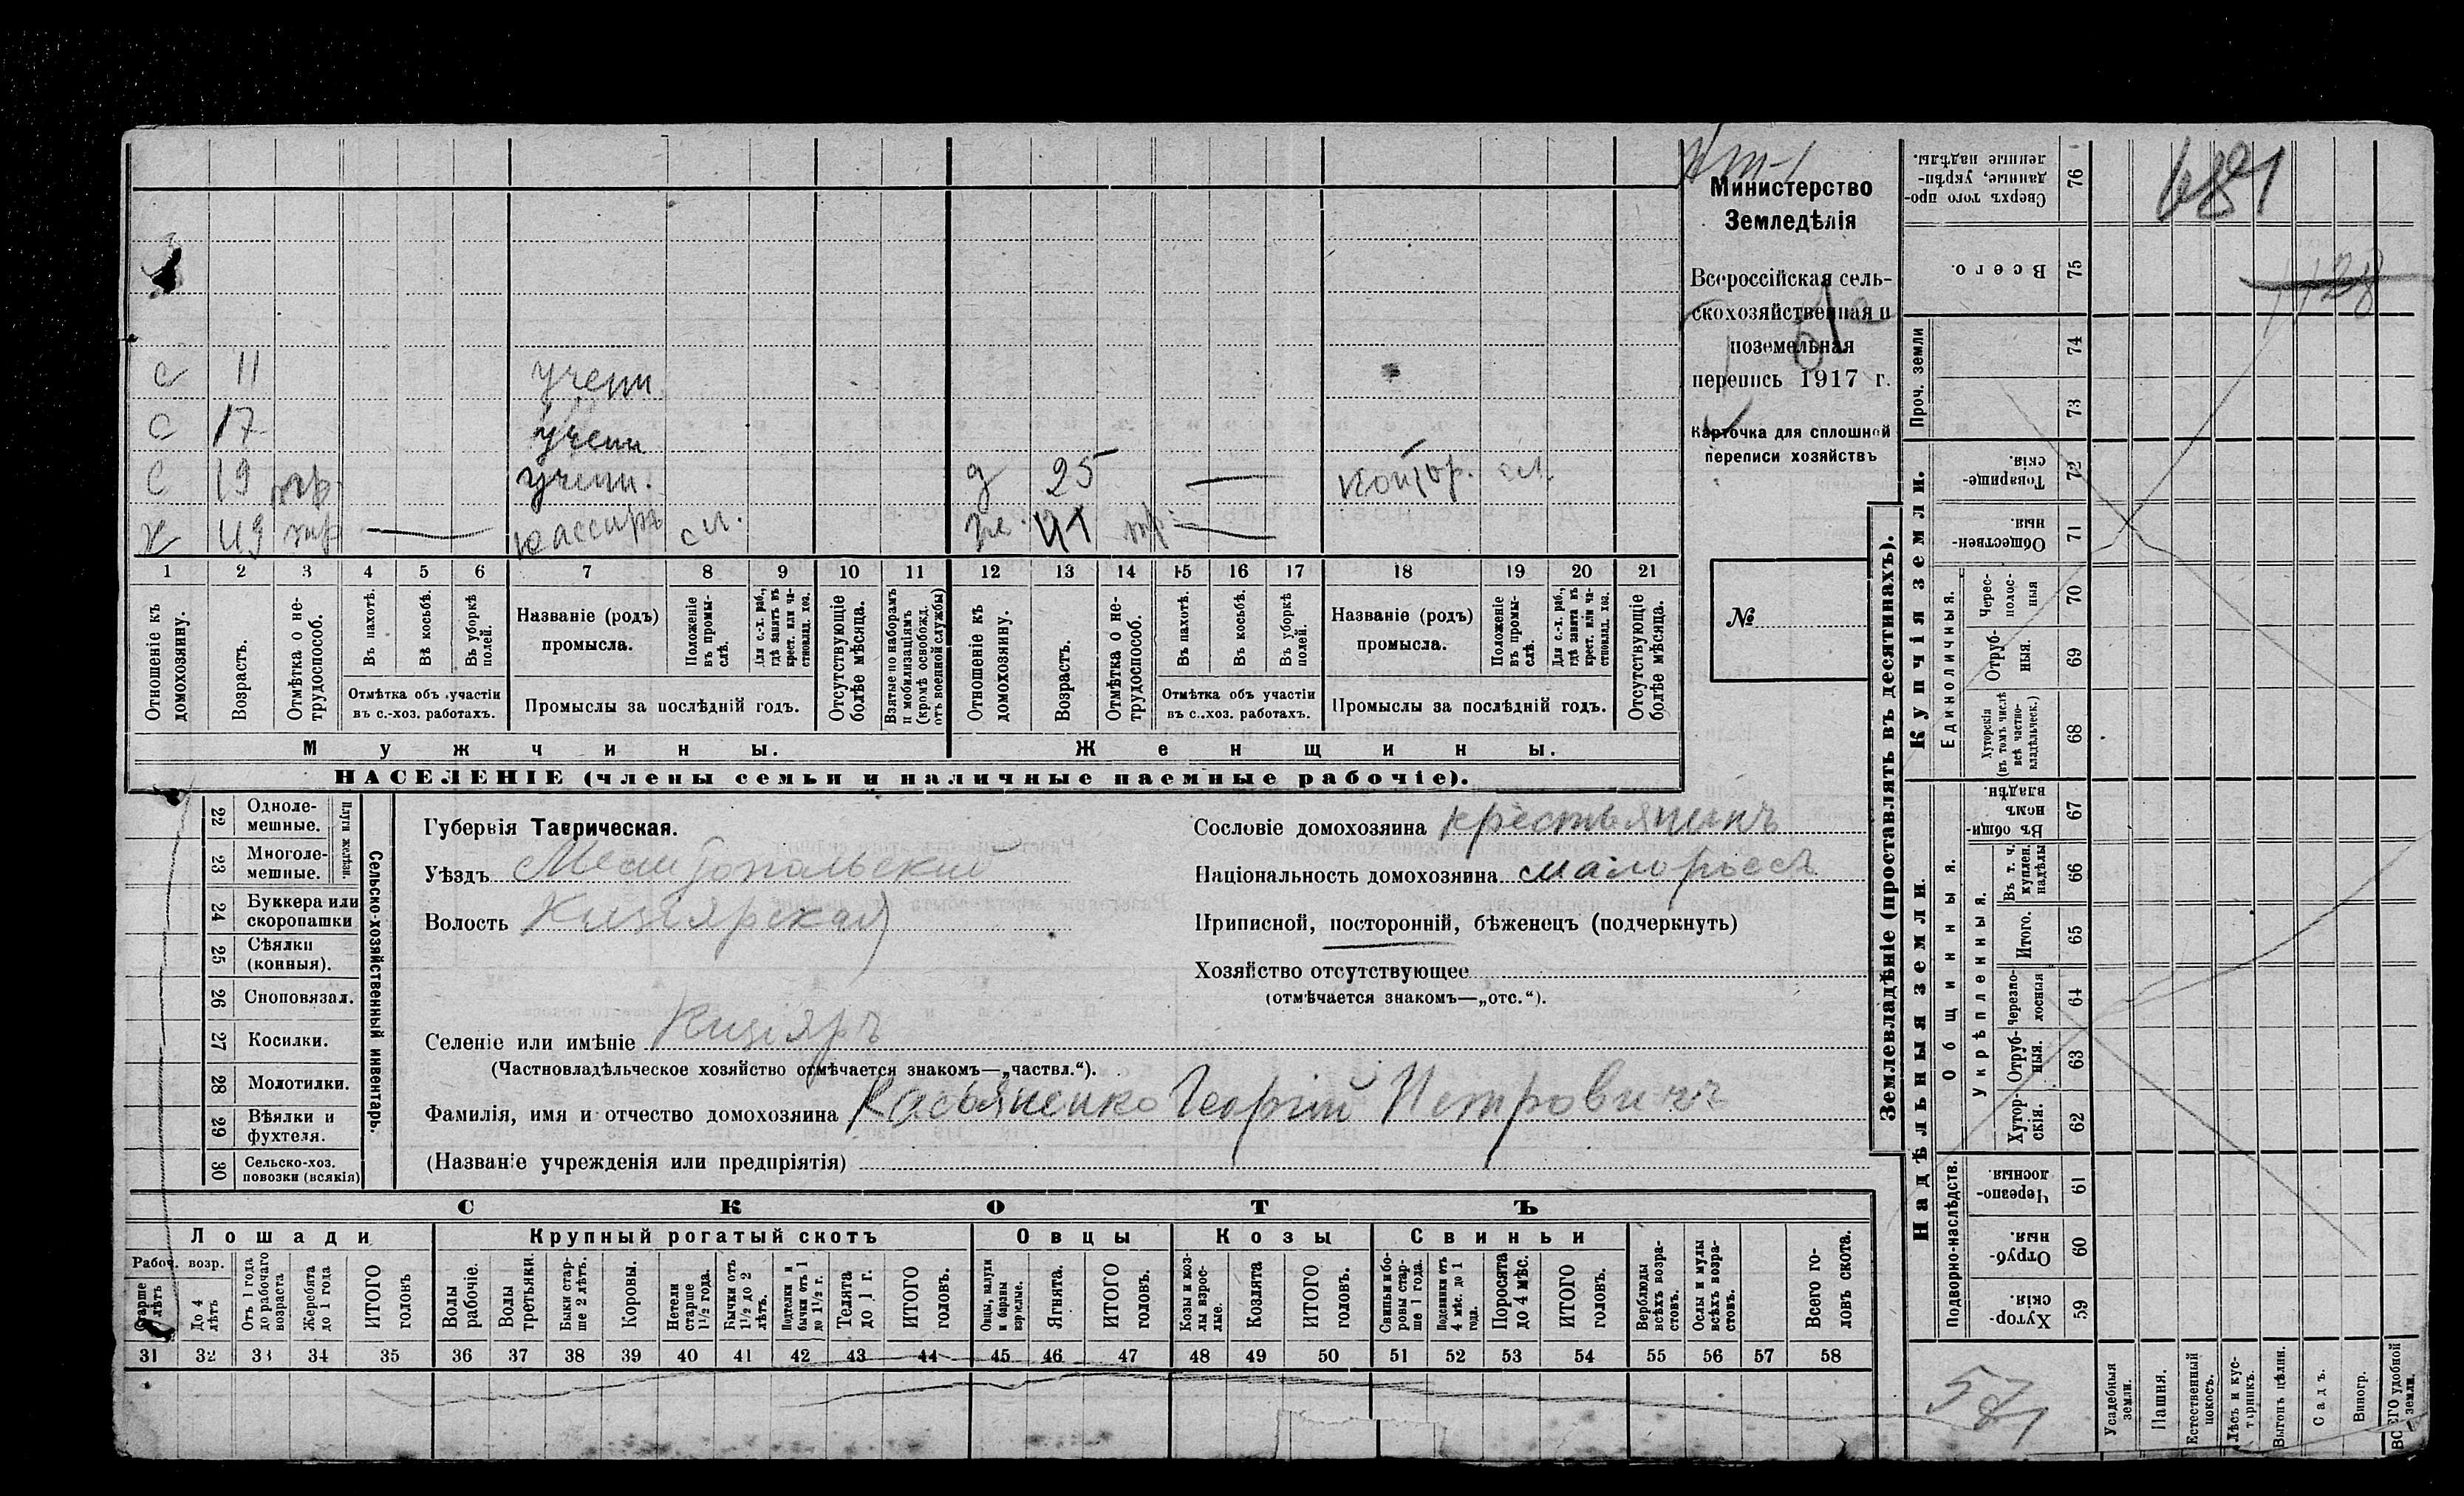 Министерство
Земледѣлія
Всероссійская сель-
скохозяйственная и
поземельная
перепись 1917 г.
Карточка для сплошной
переписи хозяйствъ
№
с 11 учени.
с 17 учени
с 19 учени. д 25 — контор. сл.
х 49 — кассиръ сл. же. 41 —
1 2 3 4 5 6 7 8 9 10 11 12 13 14 15 16 17 18 19 20 21
Отношеніе къ домохозяину.
Возрастъ.
Отмѣтка о не-трудоспособ.
Въ пахотѣ.
Въ косьбѣ.
Въ уборкѣ полей.
Отмѣтка объ участіи
въ с.-хоз. работахъ.
Названіе (родъ)
промысла.
Положеніе въ промы-слѣ.
Для с.-х. раб., гдѣ занятъ въ крест. или ча-стновлад. хоз.
Промыслы за послѣдній годъ.
Отсутствующіе болѣе мѣсяца.
Взятые по наборамъ и мобилизаціямъ (кромѣ освобожд. отъ военной службы)
Отношеніе къ домохозяину.
Возрастъ.
Отмѣтка о не-трудоспособ.
Въ пахотѣ.
Въ косьбѣ.
Въ уборкѣ полей.
Отмѣтка объ участіи
въ с.-хоз. работахъ.
Названіе (родъ)
промысла.
Положеніе въ промы-слѣ.
Для с.-х. раб., гдѣ занята въ крест. или ча-стновлад. хоз.
Промыслы за послѣдній годъ.
Отсутствующіе болѣе мѣсяца.
Мужчины. Женщины.
НАСЕЛЕНІЕ (члены семьи и наличные наемные рабочіе).
Сельско-хозяйственный инвентарь.
Плуги желѣзн.
22 Одноле-мешные.
23 Многоле-мешные.
24 Буккера или скоропашки
25 Сѣялки (конныя).
26 Сноповязал.
27 Косилки.
28 Молотилки.
29 Вѣялки и фухтеля.
30 Сельско-хоз. повозки (всякія)
Губернія Таврическая.
Уѣздъ Мелитопольскій
Волость Кизіярская
Селеніе или имѣніе Кизіяръ
(Частновладѣльческое хозяйство отмѣчается знакомъ—„частвл.“).
Фамилія, имя и отчество домохозяина Касьяненко Георгій Петровичъ
(Названіе учрежденія или предпріятія)
Сословіе домохозяина крестьянинъ
Національность домохозяина малороссъ
Приписной, посторонній, бѣженецъ (подчеркнуть)
Хозяйство отсутствующее
(отмѣчается знакомъ—„отс.“).
СКОТЪ
Лошади Крупный рогатый скотъ Овцы Козы Свиньи
Рабоч. возр.
Старше 4 лѣтъ
До 4 лѣтъ
Отъ 1 года до рабочаго возраста
Жеребята до 1 года
ИТОГО головъ
Волы рабочіе.
Волы третьяки.
Быки стар-ше 2 лѣтъ.
Коровы.
Нетели старше 1½ года.
Бычки отъ 1½ до 2 лѣтъ.
Подтелки и бычки отъ 1 до 1½ г.
Телята до 1 г.
ИТОГО головъ.
Овцы, валухи и бараны взрослые.
Ягнята.
ИТОГО головъ.
Козы и коз-лы взрос-лые.
Козлята
ИТОГО головъ.
Свиньи и бо-ровы стар-ше 1 года.
Подсвинки отъ 4 мѣс. до 1 года.
Поросята до 4 мѣс.
ИТОГО головъ.
Верблюды всѣхъ возра-стовъ.
Ослы и мулы всѣхъ возра-стовъ.
Всего го-ловъ скота.
31 32 33 34 35 36 37 38 39 40 41 42 43 44 45 46 47 48 49 50 51 52 53 54 55 56 57 58
Землевладѣніе (проставлять въ десятинахъ).
Сверхъ того про-данные, укрѣп-ленные надѣлы. 76
681
Всего. 75
1128
Проч. земли 74
73
Купчія земли.
Товарище-скія. 72
Обществен-ныя. 71
Единоличныя.
Черес-полос-ныя 70
Отруб-ныя. 69
Хуторскія (въ томъ числѣ всѣ частно-владѣльческ.) 68
Надѣльныя земли.
Общинныя.
Въ общин-номъ владѣн. 67
Въ т. ч. куплен. надѣлы 66
Укрѣпленныя.
Итого. 65
Черезпо-лосныя 64
Отруб-ныя. 63
Хутор-скія. 62
Подворно-наслѣдств.
Черезпо-лосныя 61
Отруб-ныя. 60
Хутор-скія 59
Усадебныя земли.
Пашня.
Естественный покосъ.
Лѣсъ и кус-тарникъ.
Выгонъ цѣлин.
Садъ.
Виногр.
ВСЕГО удобной земли.